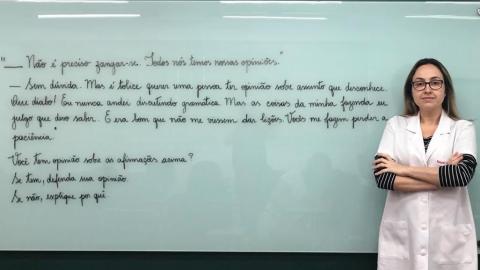 "— Não é preciso zangar-se. Todos nós temos nossas opiniões."
— Sem dúvida. Mas é tolice querer uma pessoa ter opinião sobre assunto que desconhece.
Que diabo! Eu nunca andei discutindo gramática. Mas as coisas da minha fazenda eu
julgo que devo saber. E era bom que não me viessem dar lições. Vocês me fazem perder a
paciência.
Você tem opinião sobre as afirmações acima?
Se tem, defenda sua opinião.
Se não, explique por quê